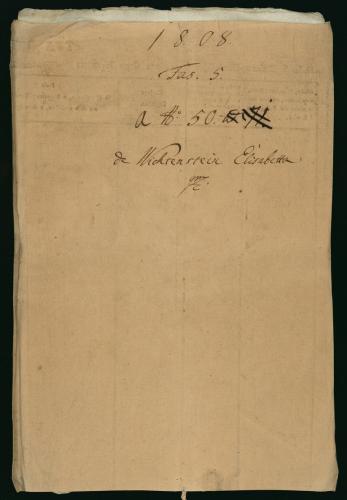 1808.
Fas. 5.
a N.º 50.
de Wicksenstein Elisabetta